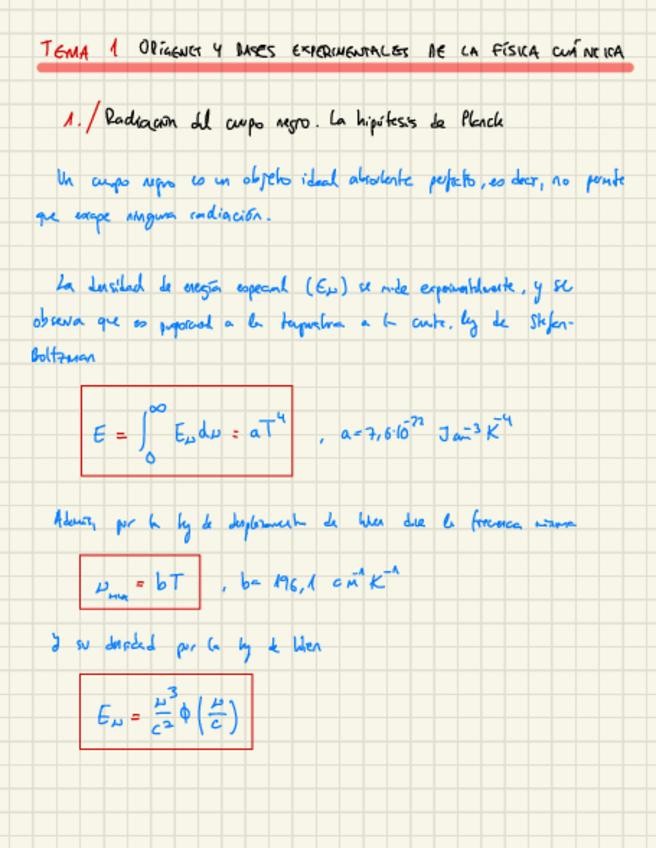 TEMA 1 ORÍGENES Y BASES EXPERIMENTALES DE LA FÍSICA CUÁNTICA
1./ Radiación del cuerpo negro. La hipótesis de Planck
Un cuerpo negro es un objeto ideal absorbente perfecto, es decir, no permite
que escape ninguna radiación.
La densidad de energía espectral (Eν) se mide experimentalmente, y se
observa que es proporcional a la temperatura a la cuarta, ley de Stefan-
Boltzman
E = ∫₀^∞ Eν dν = aT⁴ , a = 7,6·10⁻²² J cm⁻³ K⁻⁴
Además, por la ley de desplazamiento de Wien dice la frecuencia máxima
ν = bT , b = 196,1 cm⁻¹ K⁻¹
Y su densidad por la ley de Wien
Eν = ν³/c² φ(ν/c)